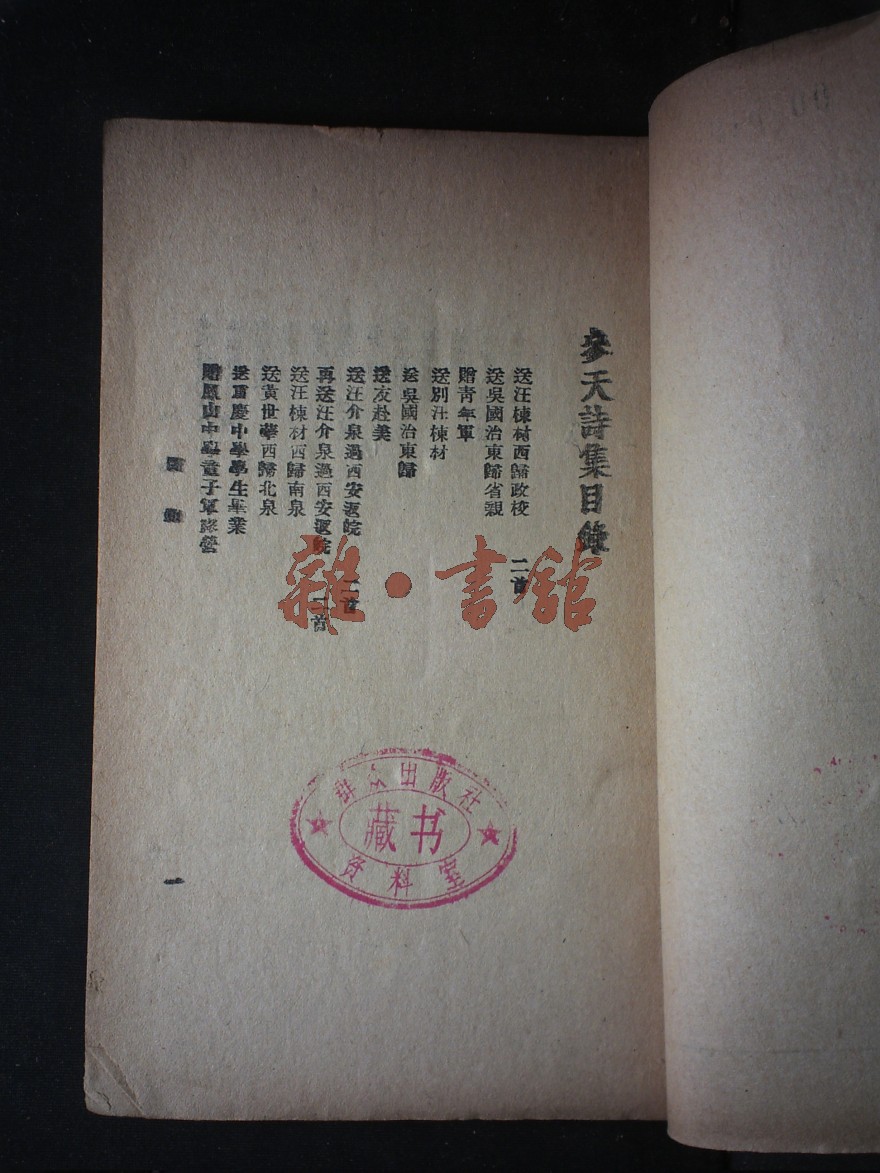 參天詩集目錄
送汪棟材西歸政校 二首
送吳國治東歸省親
贈青年軍
送別汪棟材
送吳國治東歸
送友赴美
送汪介泉過西安返皖 二首
再送汪介泉過西安返皖 二首
送汪棟材西歸南泉
送黃世華西歸北泉
送重慶中學學生畢業
贈鳳山中學童子軍露營
目錄
一
雜·書館
群众出版社
藏书
资料室